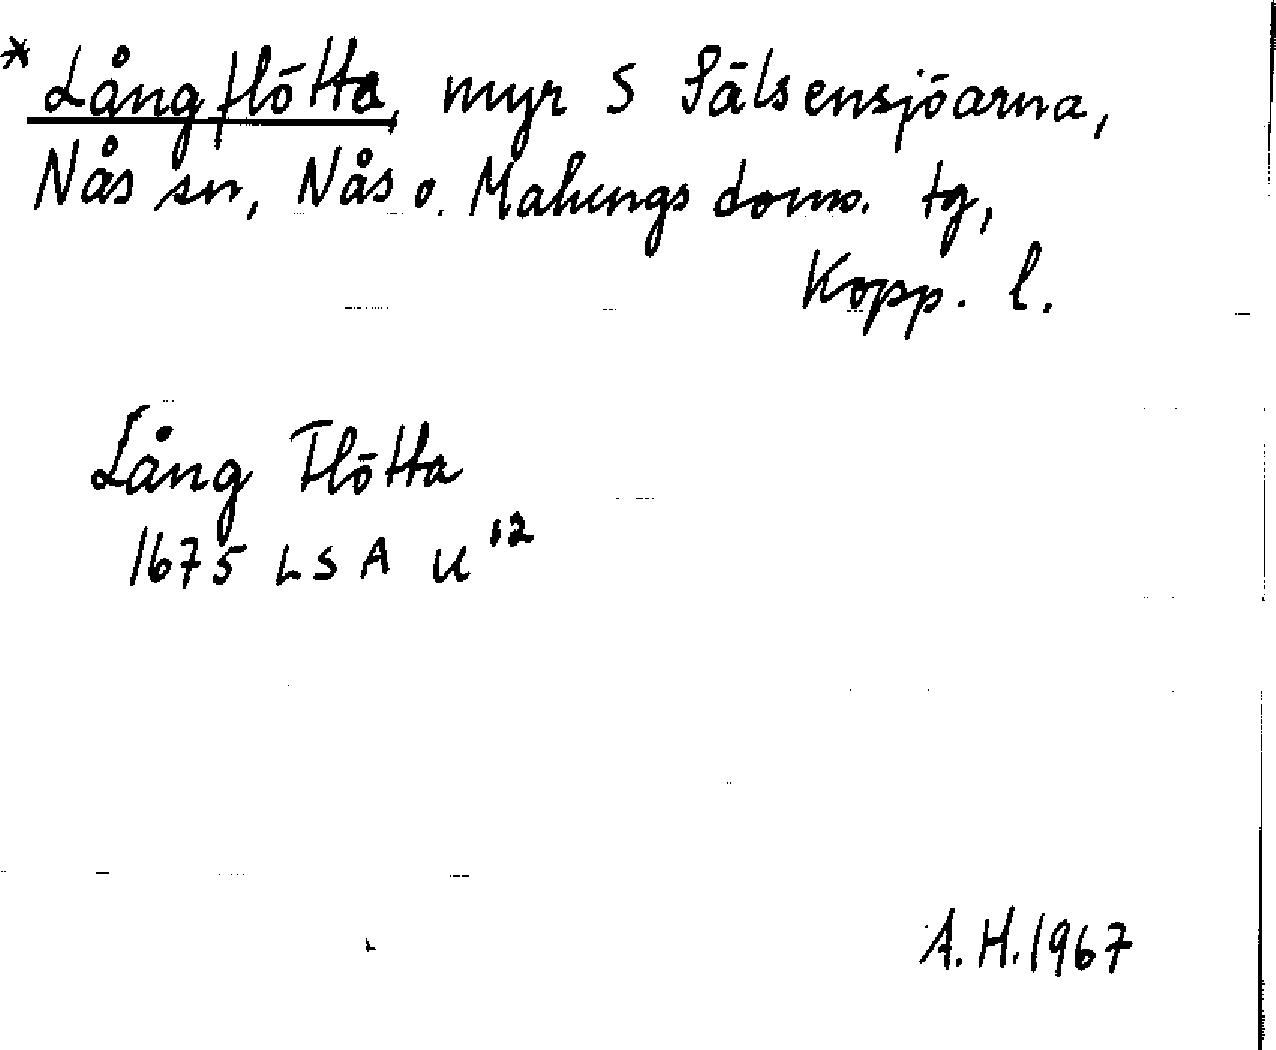 *Långflötta, myr S Sälsensjöarna,
Nås sn, Nås o. Malungs doms. tg,
Kopp. l.
Lång Flötta
1675 LSA U 12
A.H. 1967